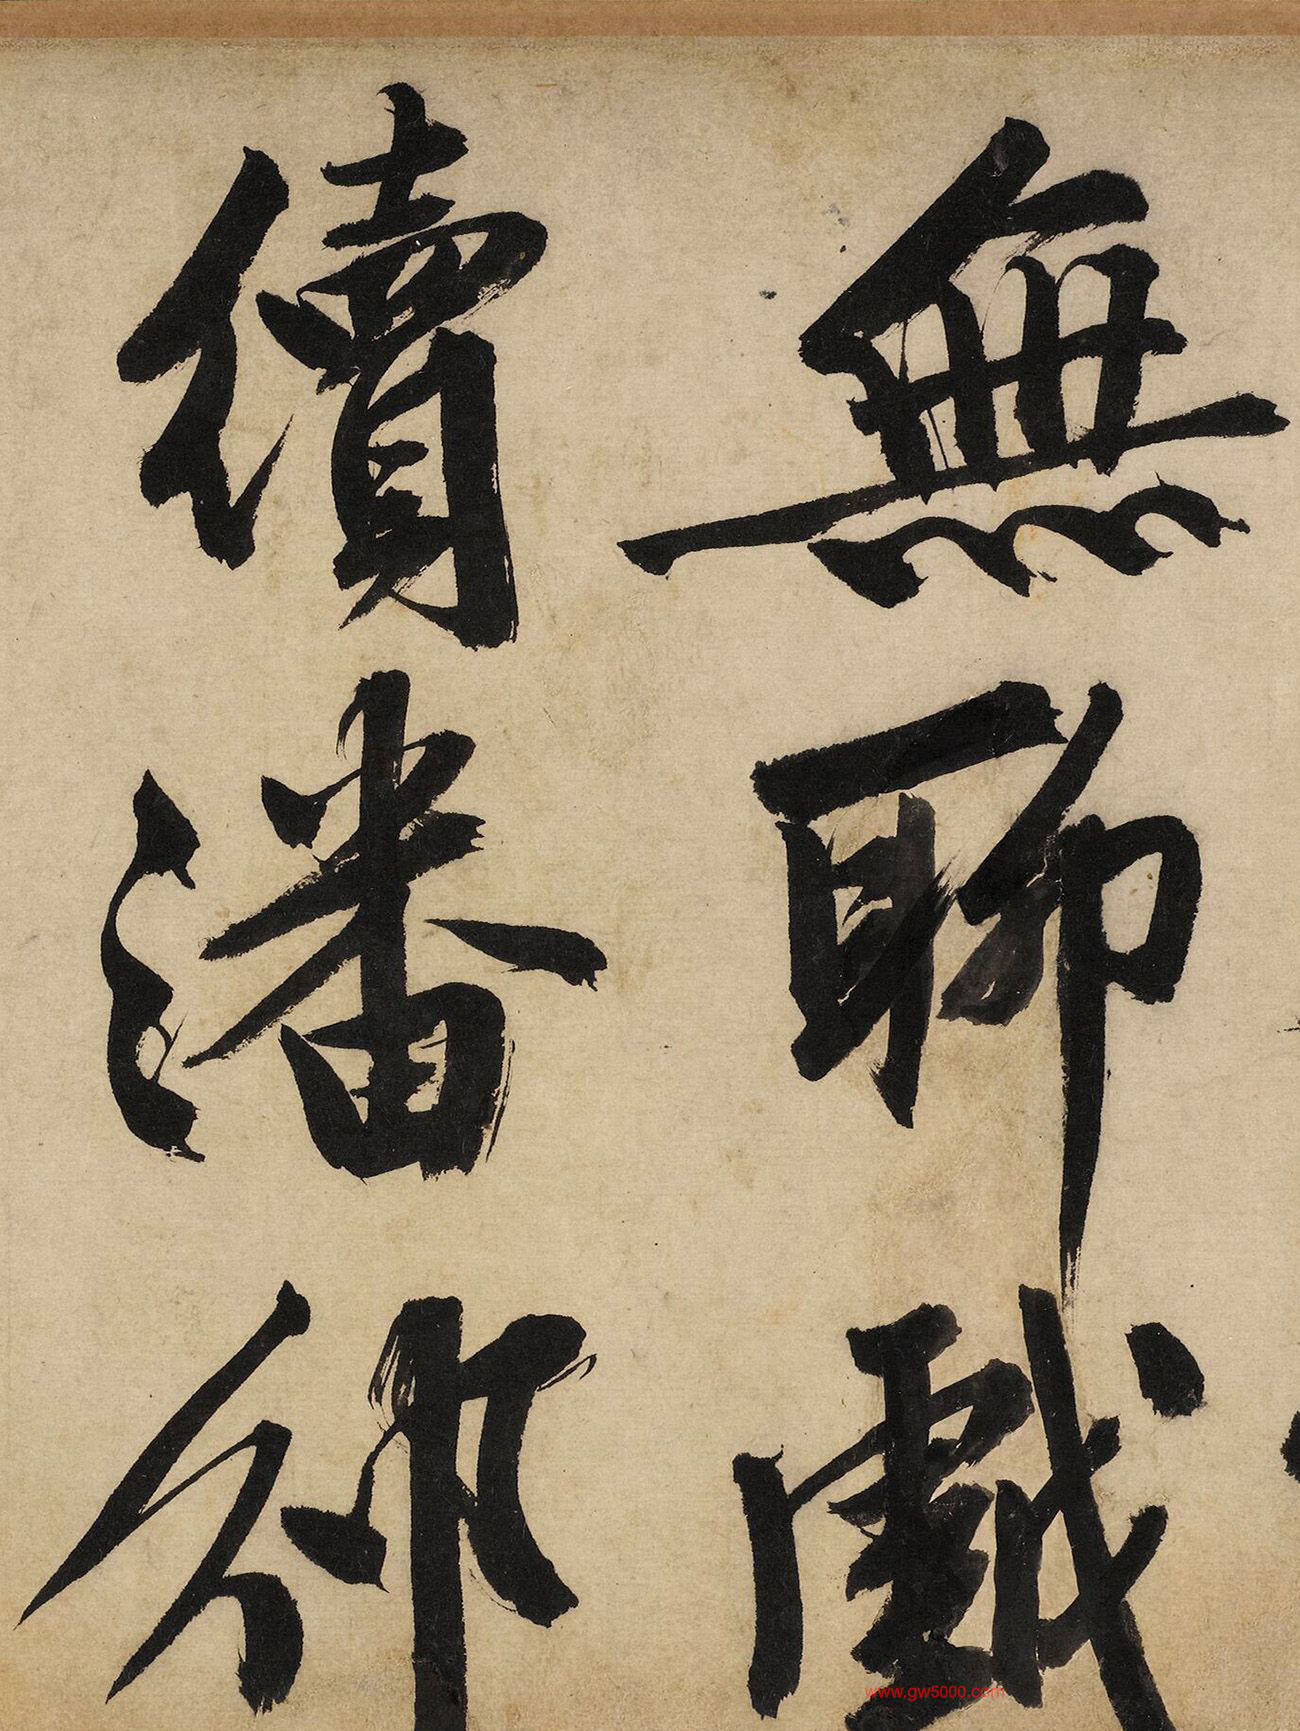 無聊戲
續潘邠
www.gw5000.com